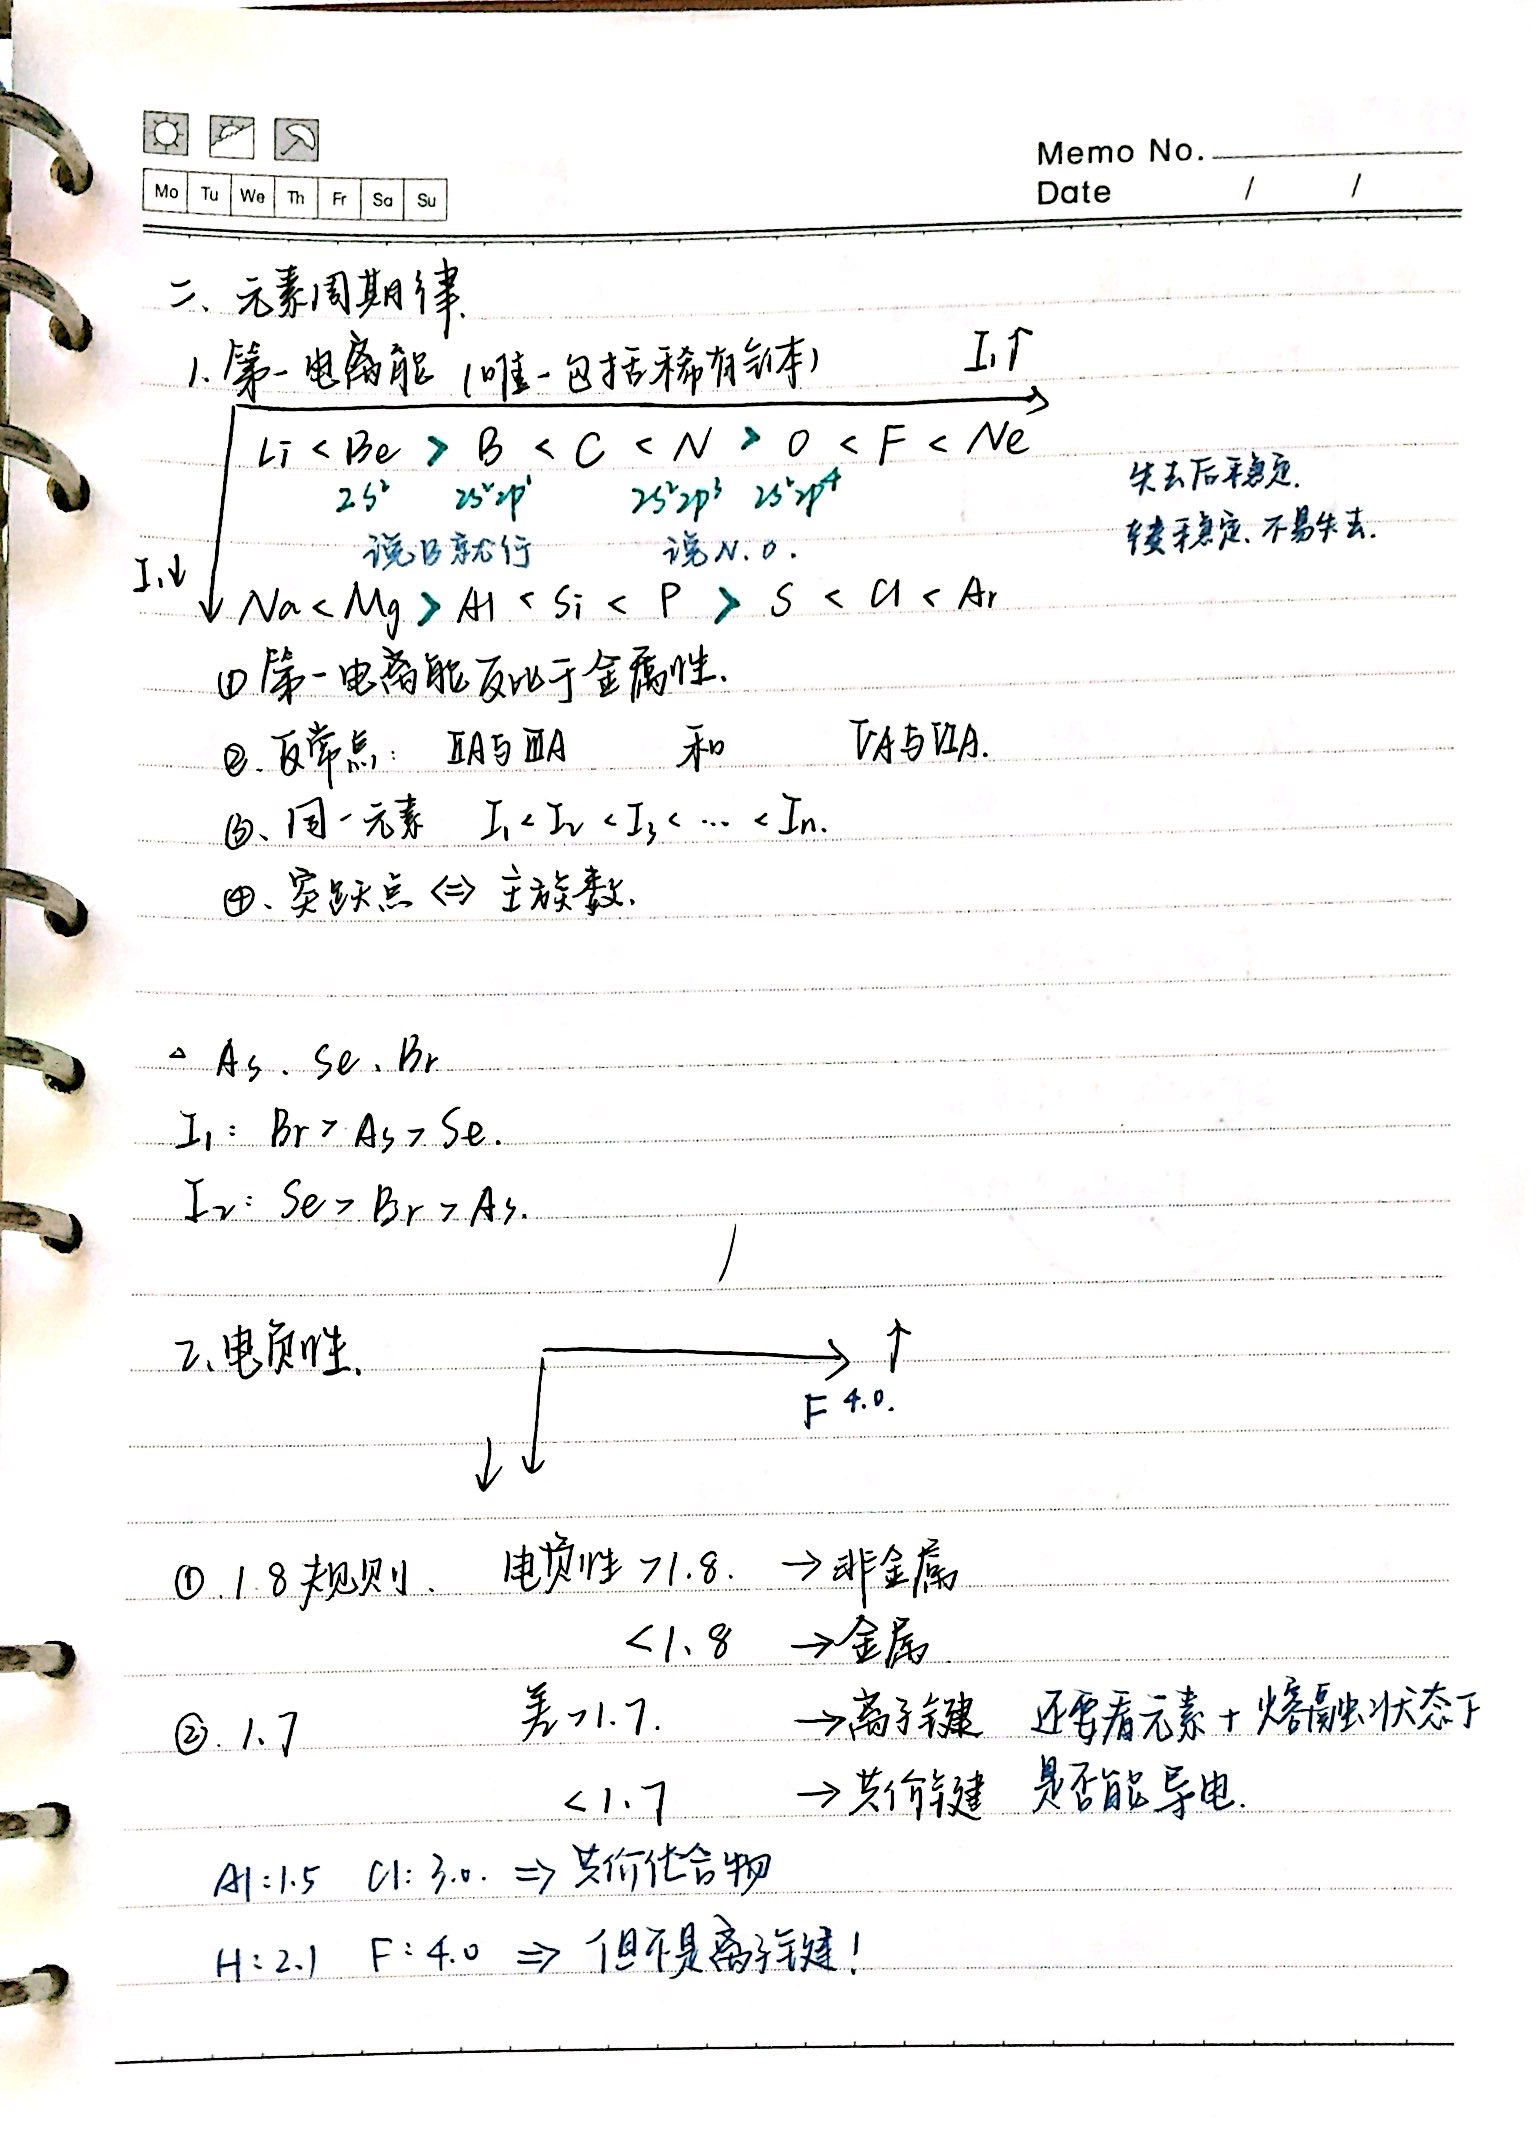 Memo No.
Mo Tu We Th Fr Sa Su
Date / /
二、元素周期律.
1.第一电离能(唯一包括稀有气体) I₁↑
Li < Be > B < C < N > O < F < Ne
2s² 2s²2p¹ 2s²2p³ 2s²2p⁴
失去后稳定.
说B就行 说N.O.
较稳定、不易失去.
I₁↓
Na < Mg > Al < Si < P > S < Cl < Ar
①第一电离能反比于金属性.
②.反常点: ⅡA与ⅢA 和 ⅤA与ⅥA.
③、同一元素 I₁ < I₂ < I₃ < … < In.
④、突跃点 <=> 主族数.
△ As、Se、Br
I₁: Br > As > Se.
I₂: Se > Br > As.
2、电负性. ↑
F 4.0.
↓
①.1.8规则. 电负性 >1.8. →非金属
<1.8 →金属
②.1.7 差>1.7. →离子键 还要看元素+熔融状态下
<1.7 →共价键 是否能导电.
Al:1.5 Cl:3.0. => 共价化合物
H:2.1 F:4.0 => 但不是离子键!